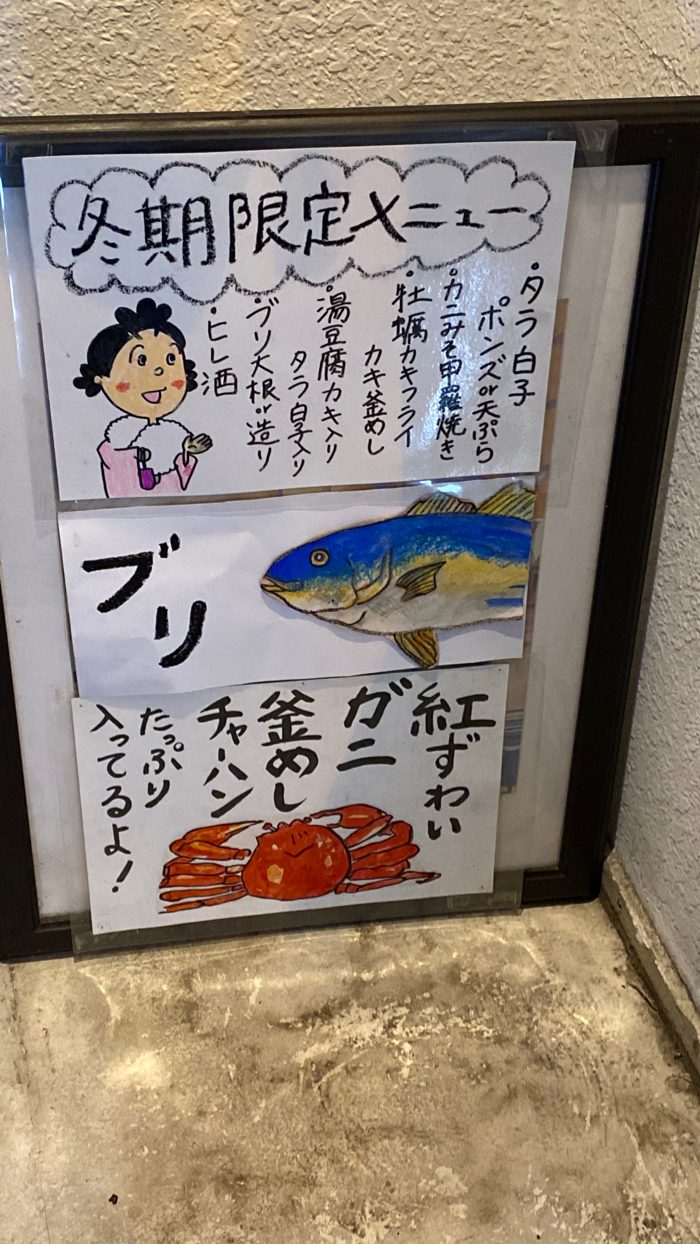 冬期限定メニュー
・タラ白子
ポンズor天ぷら
・カニみそ甲羅焼き
・牡蠣カキフライ
カキ釜めし
・湯豆腐カキ入り
タラ白子入り
・ブリ大根or造り
・ヒレ酒
ブリ
紅ずわい
ガニ
釜めし
チャーハン
たっぷり
入ってるよ！